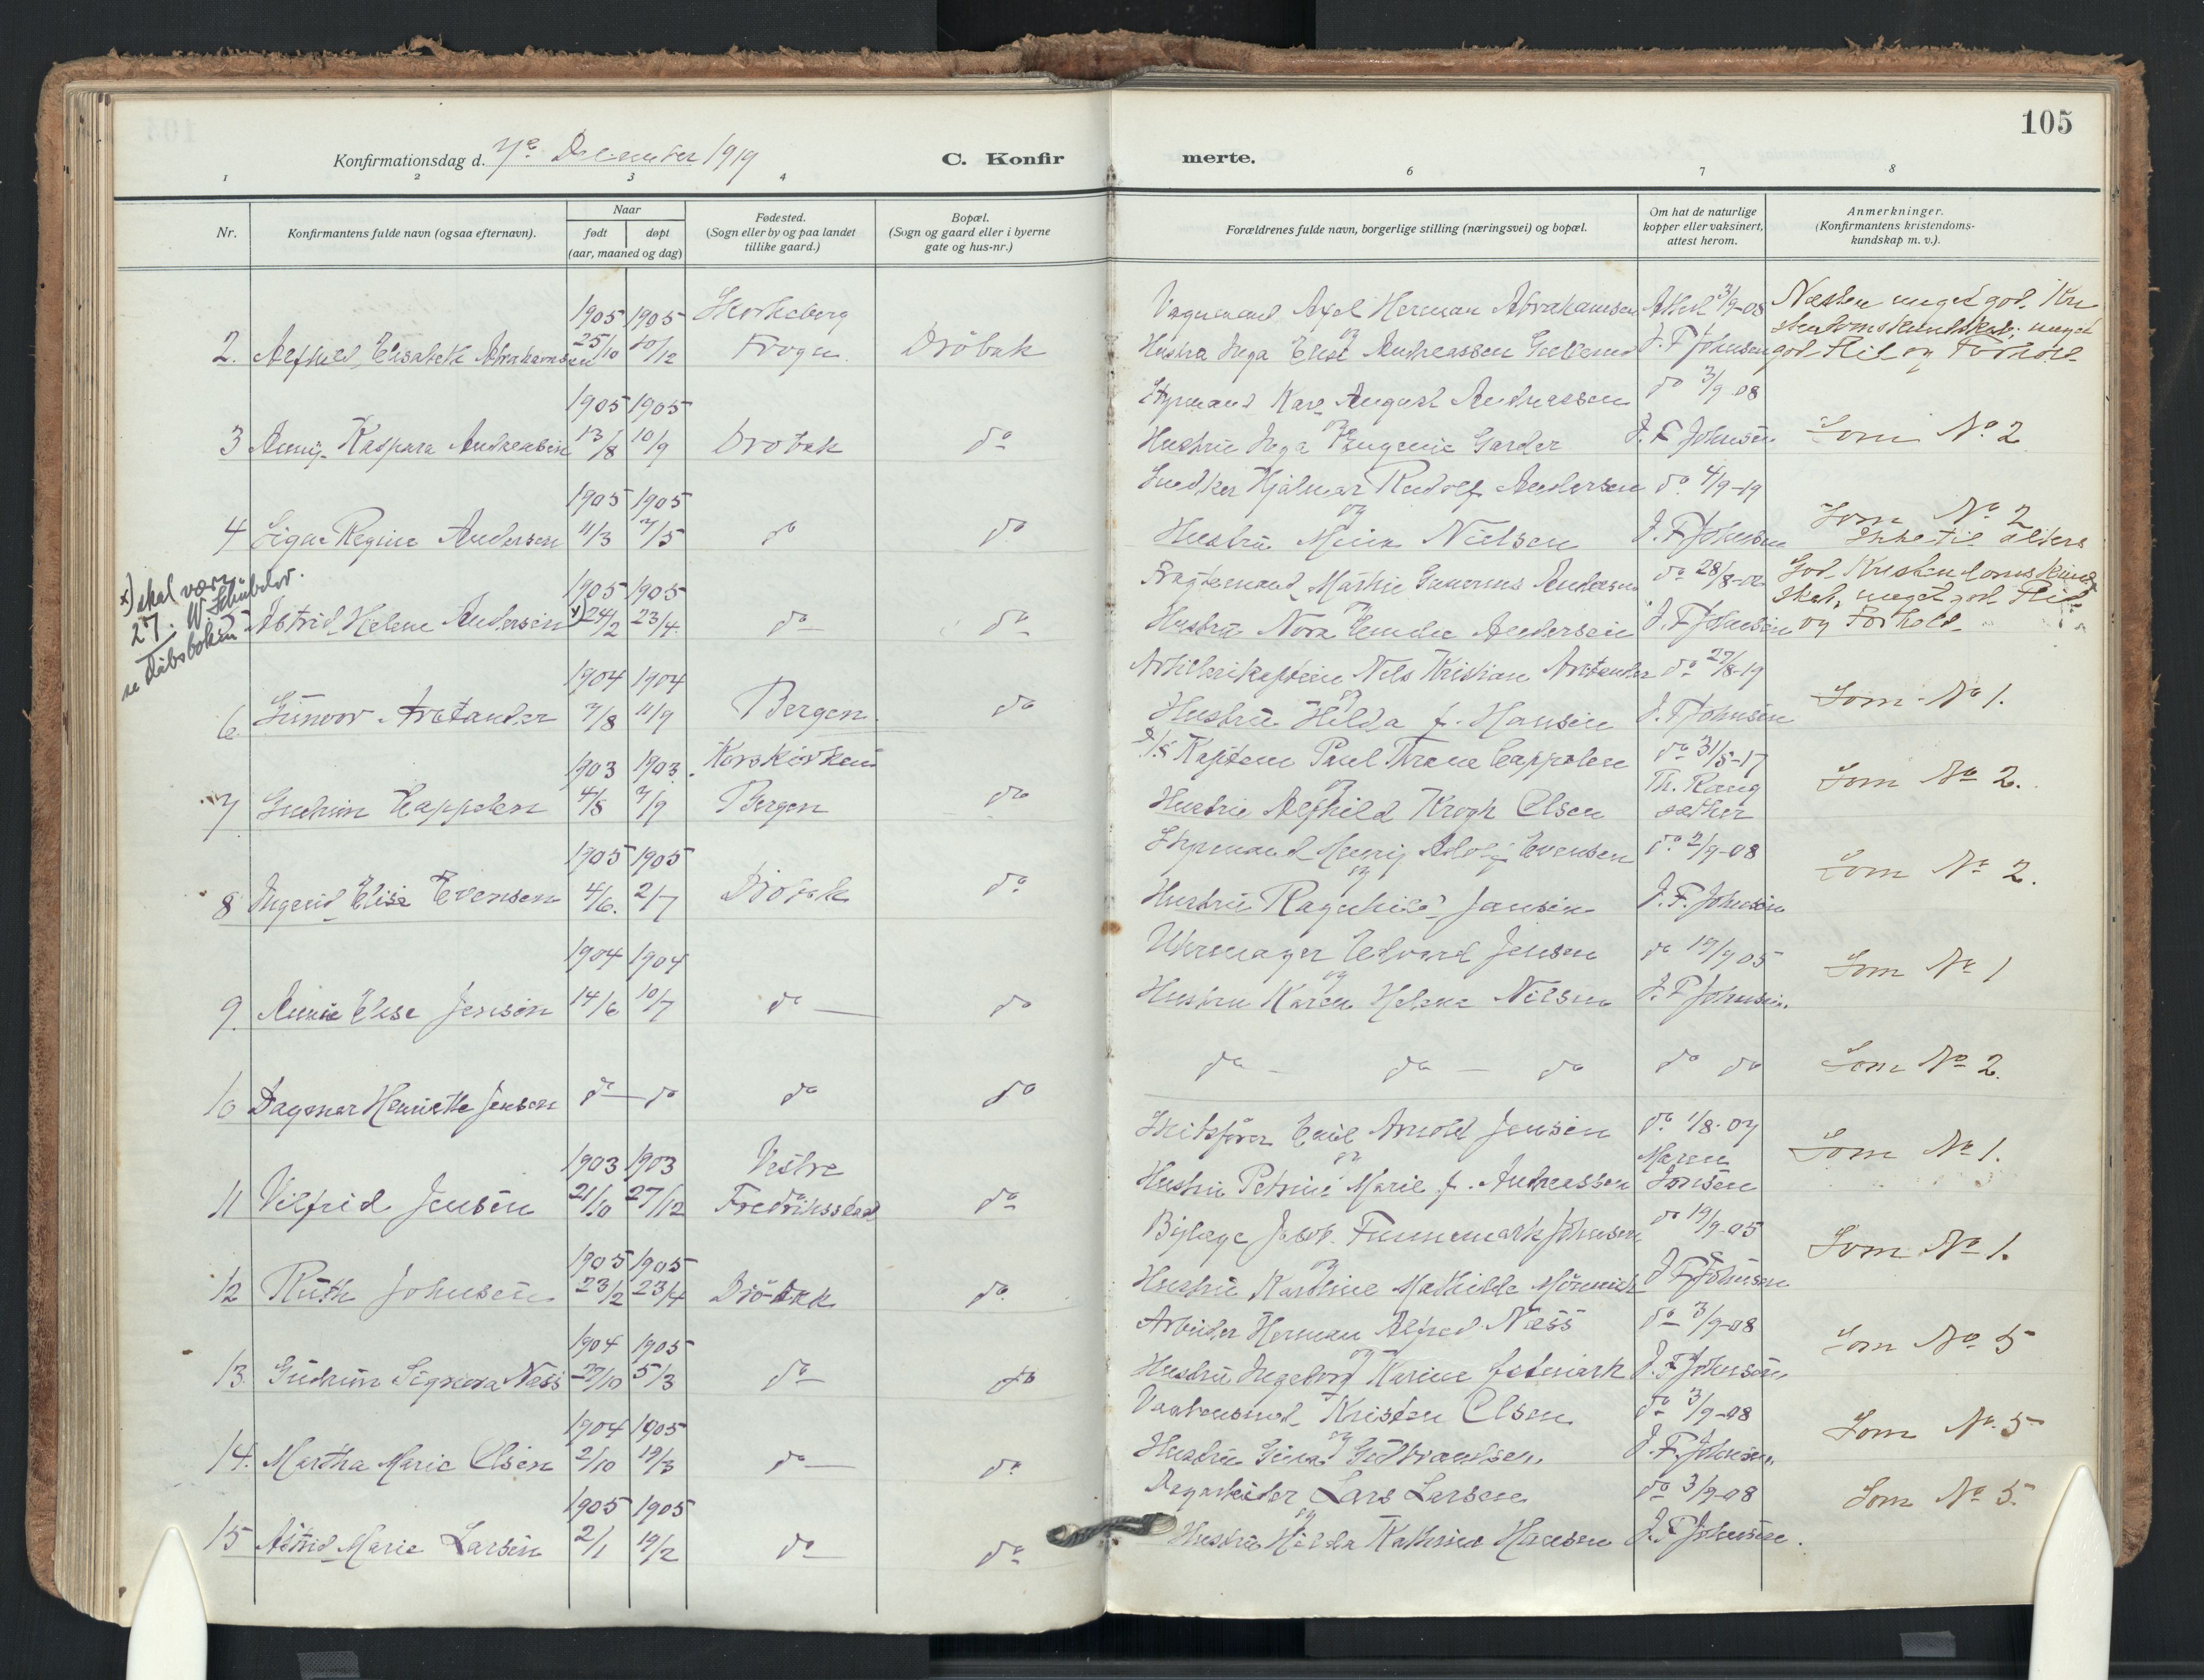 105
Konfirmationsdag d. 7de December 1919
C. Konfir merte.
1 2 3 4 6 7 8
Nr.
Konfirmantens fulde navn (ogsaa efternavn).
Naar
født døpt
(aar, maaned og dag)
Fødested.
(Sogn eller by og paa landet
tillike gaard.)
Bopæl.
(Sogn og gaard eller i byerne
gate og hus-nr.)
Forældrenes fulde navn, borgerlige stilling (næringsvei) og bopæl.
Om hat de naturlige
kopper eller vaksinert,
attest herom.
Anmerkninger.
(Konfirmantens kristendoms-
kundskap m. v.).
1905 1905 Axel Herman Abrahamsen Attest 3/9-08 Næsten meget god Kri
stendomskundskab; meget
2. Alfhild Elisabeth Abrahamsen 25/10 10/12 Frogn Dröbak og Hustru Inga Elise Andreassen J. F Johnsen god Flid og Forhold
1905 1905 Styrmand Karl August Andreassen do 3/9-08
3 Kaspara Andreassen 13/8 10/9 Dröbak do og Hustru Inga Eugenie Garder J. F Johnsen Som No 2
1905 1905 Snedker Hjalmar Rudolf Andersen do 4/9-19
4 Regine Andersen 11/3 7/5 do do og Hustru Nielsen J. F Johnsen Som No 2
Ikke til alters
*) skal være
27. W. Schübeler.
se dåbsboken
1905 1905 Andersen do 28/8-
God Kristendomskund
skab, meget god Flid
5 Astrid Helene Andersen x) 24/2 23/4 do do og Hustru Nora Andersen J. F Johnsen og Forhold
1904 1904 Artillerikaptein Nils Kristian Arctander do 27/8-19
6 Gunvor Arctander 7/8 11/9 Bergen do og Hustru Hilda f. Hansen J. F Johnsen Som No 1.
1903 1903 Korskirken Kaptein Paul Thrane Cappelen do 31/5-17
7 Gudrun Cappelen 4/8 7/9 Bergen do og Hustru Alfhild Krogh Olsen Th. Rang
sæther Som No 2.
1905 1905 Styrmand Henry Adolf Evensen do 2/9-08
8 Ingrid Elise Evensen 4/6. 2/7 Dröbak do og Hustru Ragnhild Jansen J. F. Johnsen Som No 2.
1904 1904 Uhrmager Edvard Jensen do 19/9 05
9. Elise Jensen 14/6 10/7 do do og Hustru Karen Helene Nilsen J. F Johnsen. Som No 1
10 Dagmar Henriette Jensen do do do do do do do do do Som No 2.
1903 1903 Vestre Skibsfører Emil Arnold Jensen do 1/8-07
11 Vilfrid Jensen 21/10 27/12 Fredriksstad do og Hustru Petrine Marie f. Andreassen Maren
Jonsen Som No 1.
1905 1905 Johnsen do 19/9-05
12 Ruth Johnsen 23/2 23/4 Dröbak do og Hustru Karoline Mathilde J F Johnsen Som No 1.
1904 1905 Arbeider Herman Alfred Næss do 3/9-08
13. Gudrun Næss 27/10 5/3 do do og Hustru Ingeborg Karine J. F Johnsen Som No 5
1904 1905 Kristen Olsen do 3/9-08
14. Martha Marie Olsen 2/10 19/3 do do og Hustru Gina Gulbrandsen J. F. Johnsen Som No 5
1905 1905 Dagarbeider Lars Larsen do 3/9-08
15 Astrid Marie Larsen 2/1 19/2 do do og Hustru Hilda Kathrine Hansen J. F Johnsen. Som No 5.